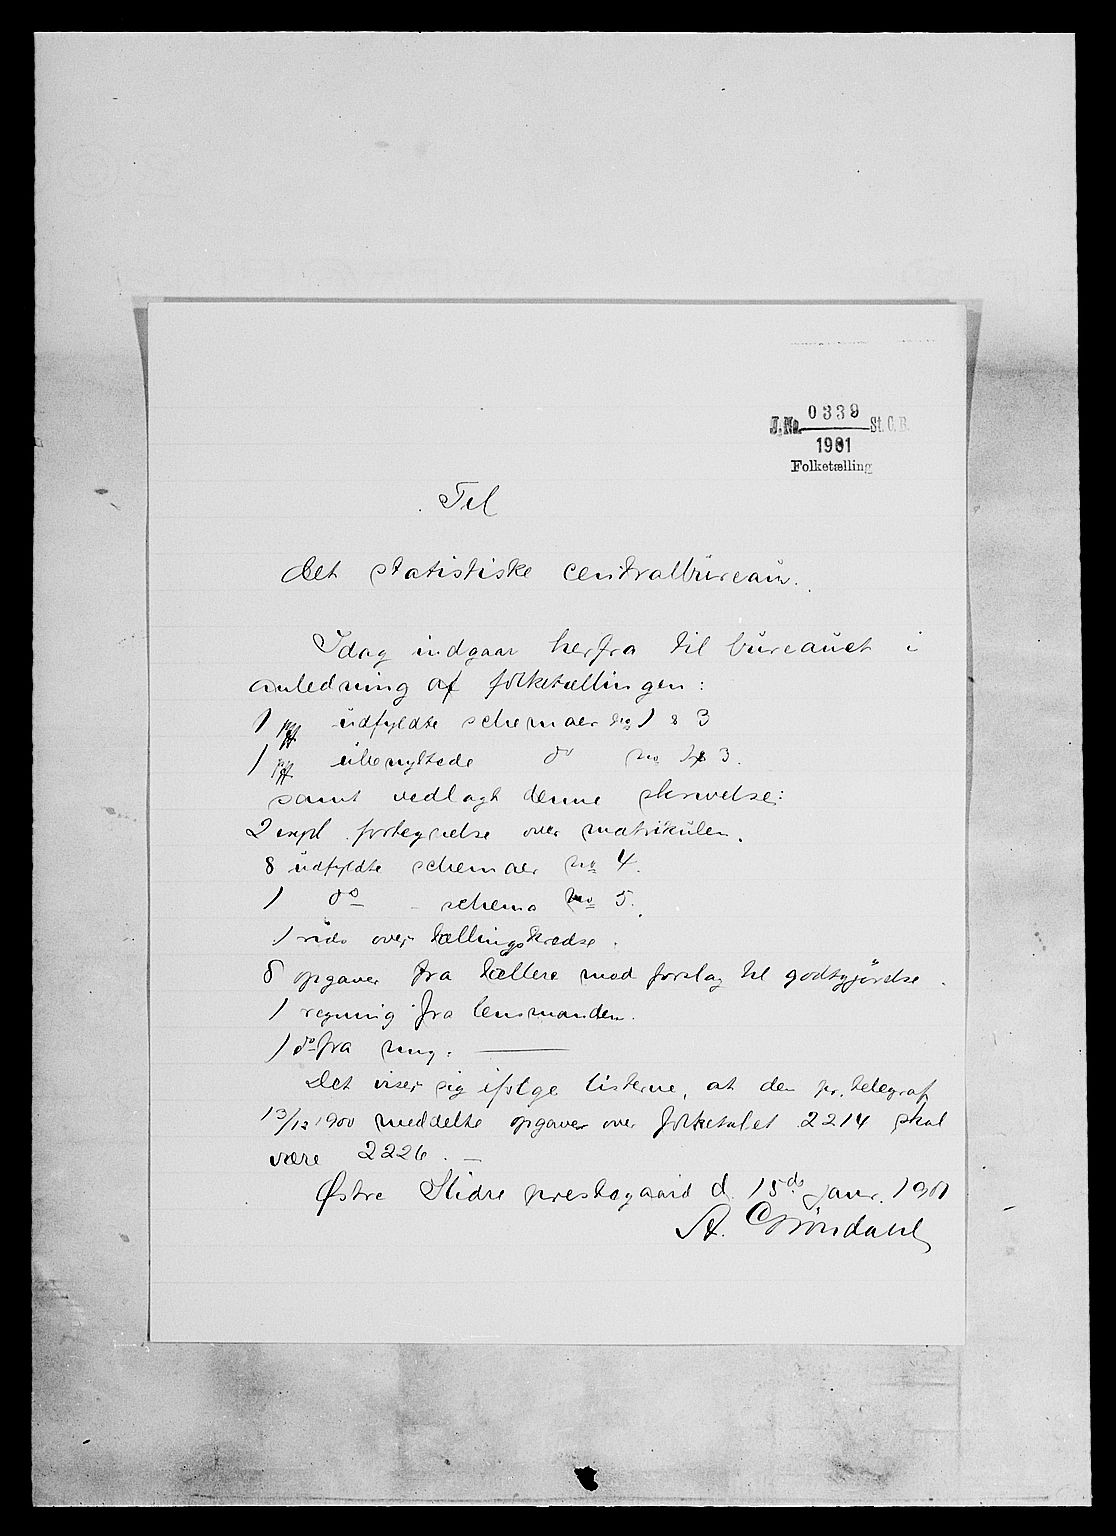 J.No. 0339 St. C. B.
1901
Folketælling
Til
det statistiske centralbureau.
Idag indgaar herfra til bureauet i
anledning af folketællingen:
1 udfyldte schemaer No 1 & 3
1 ubenyttede do No 3.
samt vedlagt denne skrivelse:
2 expl. fortegnelse over matrikulen.
8 udfyldte schemaer No 4.
1 do - schema No 5.
1 over tællingskredse.
8 opgaver fra tællere med forslag til godtgjørelse.
1 regning fra lensmanden.
1 do fra mig.
Det viser sig ifølge listerne, at den pr. telegraf
13/12 1900 meddelte opgaver over folketalet 2214 skal
være 2226. —
Østre Slidre prestegaard d. 15de Janr. 1901
A. Grøndahl